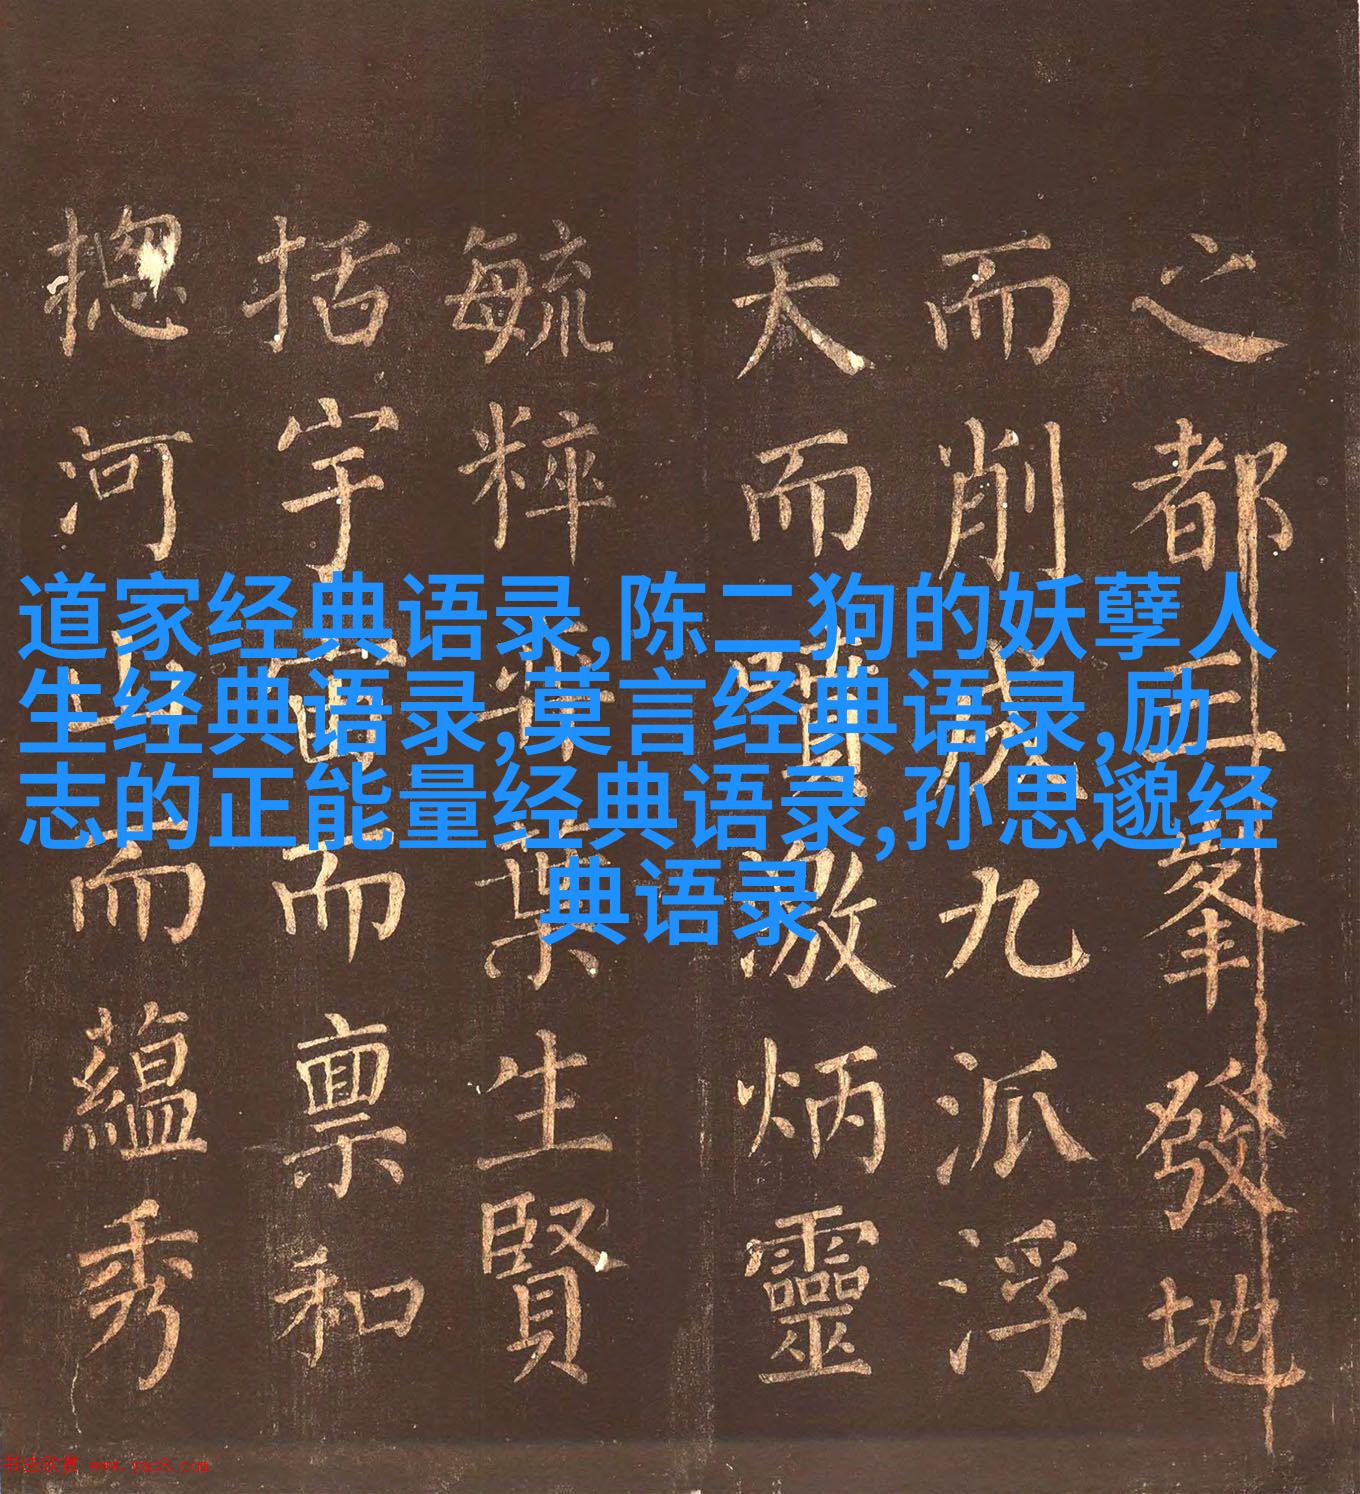 道家经典语录,陈二狗的妖孽人
生经典语录,莫言经典语录,励
志的正能量经典语录,孙思邈经
典语录
之都三峯發地
而削成九派浮
天而噴激炳靈
毓粹葉生賢
括宇宙而禀和
揔河山而蘊秀
书法欣赏 www.yac8.com